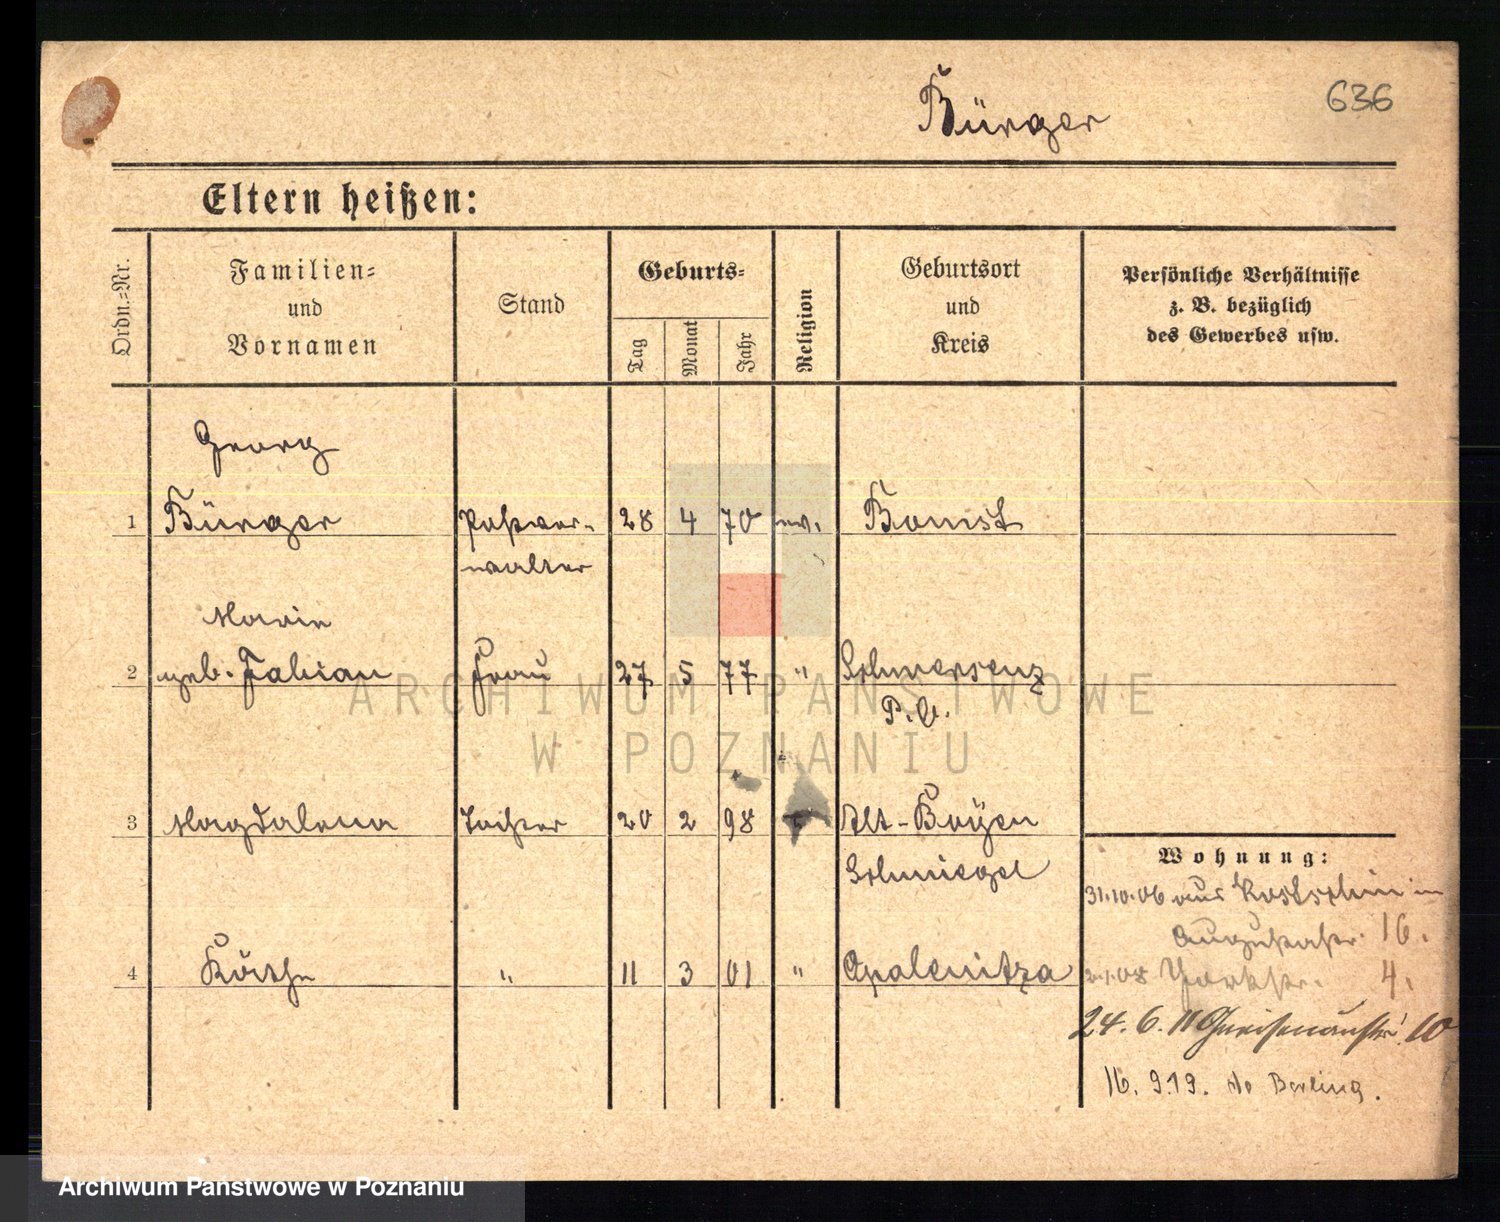 636
Bürger
Eltern heißen:
Ordn.=Nr.
Familien=
und
Vornamen
Stand
Geburts=
Tag
Monat
Jahr
Religion
Geburtsort
und
Kreis
Persönliche Verhältnisse
z. B. bezüglich
des Gewerbes usw.
Georg
1 Bürger 28 4 70 ev. Bomst
walter
Marie
2 geb. Fabian Frau 27 5 77 " Schwersenz
P. O.
3 Magdalena Tochter 20 2 98 Alt-Boyen
Schmiegel
4 Käthe " 11 3 01 " Opalenitza
Wohnung:
31.10.06 aus Kostschin in
Augustastr. 16.
2.1.08 Yorkstr. 4.
24. 6. 11 Gneisenaustr. 10
16. 9.19. Berlin
ARCHIWUM PAŃSTWOWE
W POZNANIU
Archiwum Państwowe w Poznaniu